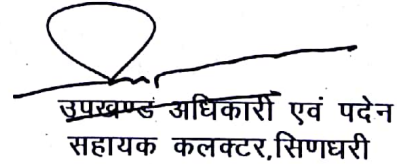 उपखण्ड अधिकारी एवं पदेन
सहायक कलक्टर,सिणधरी